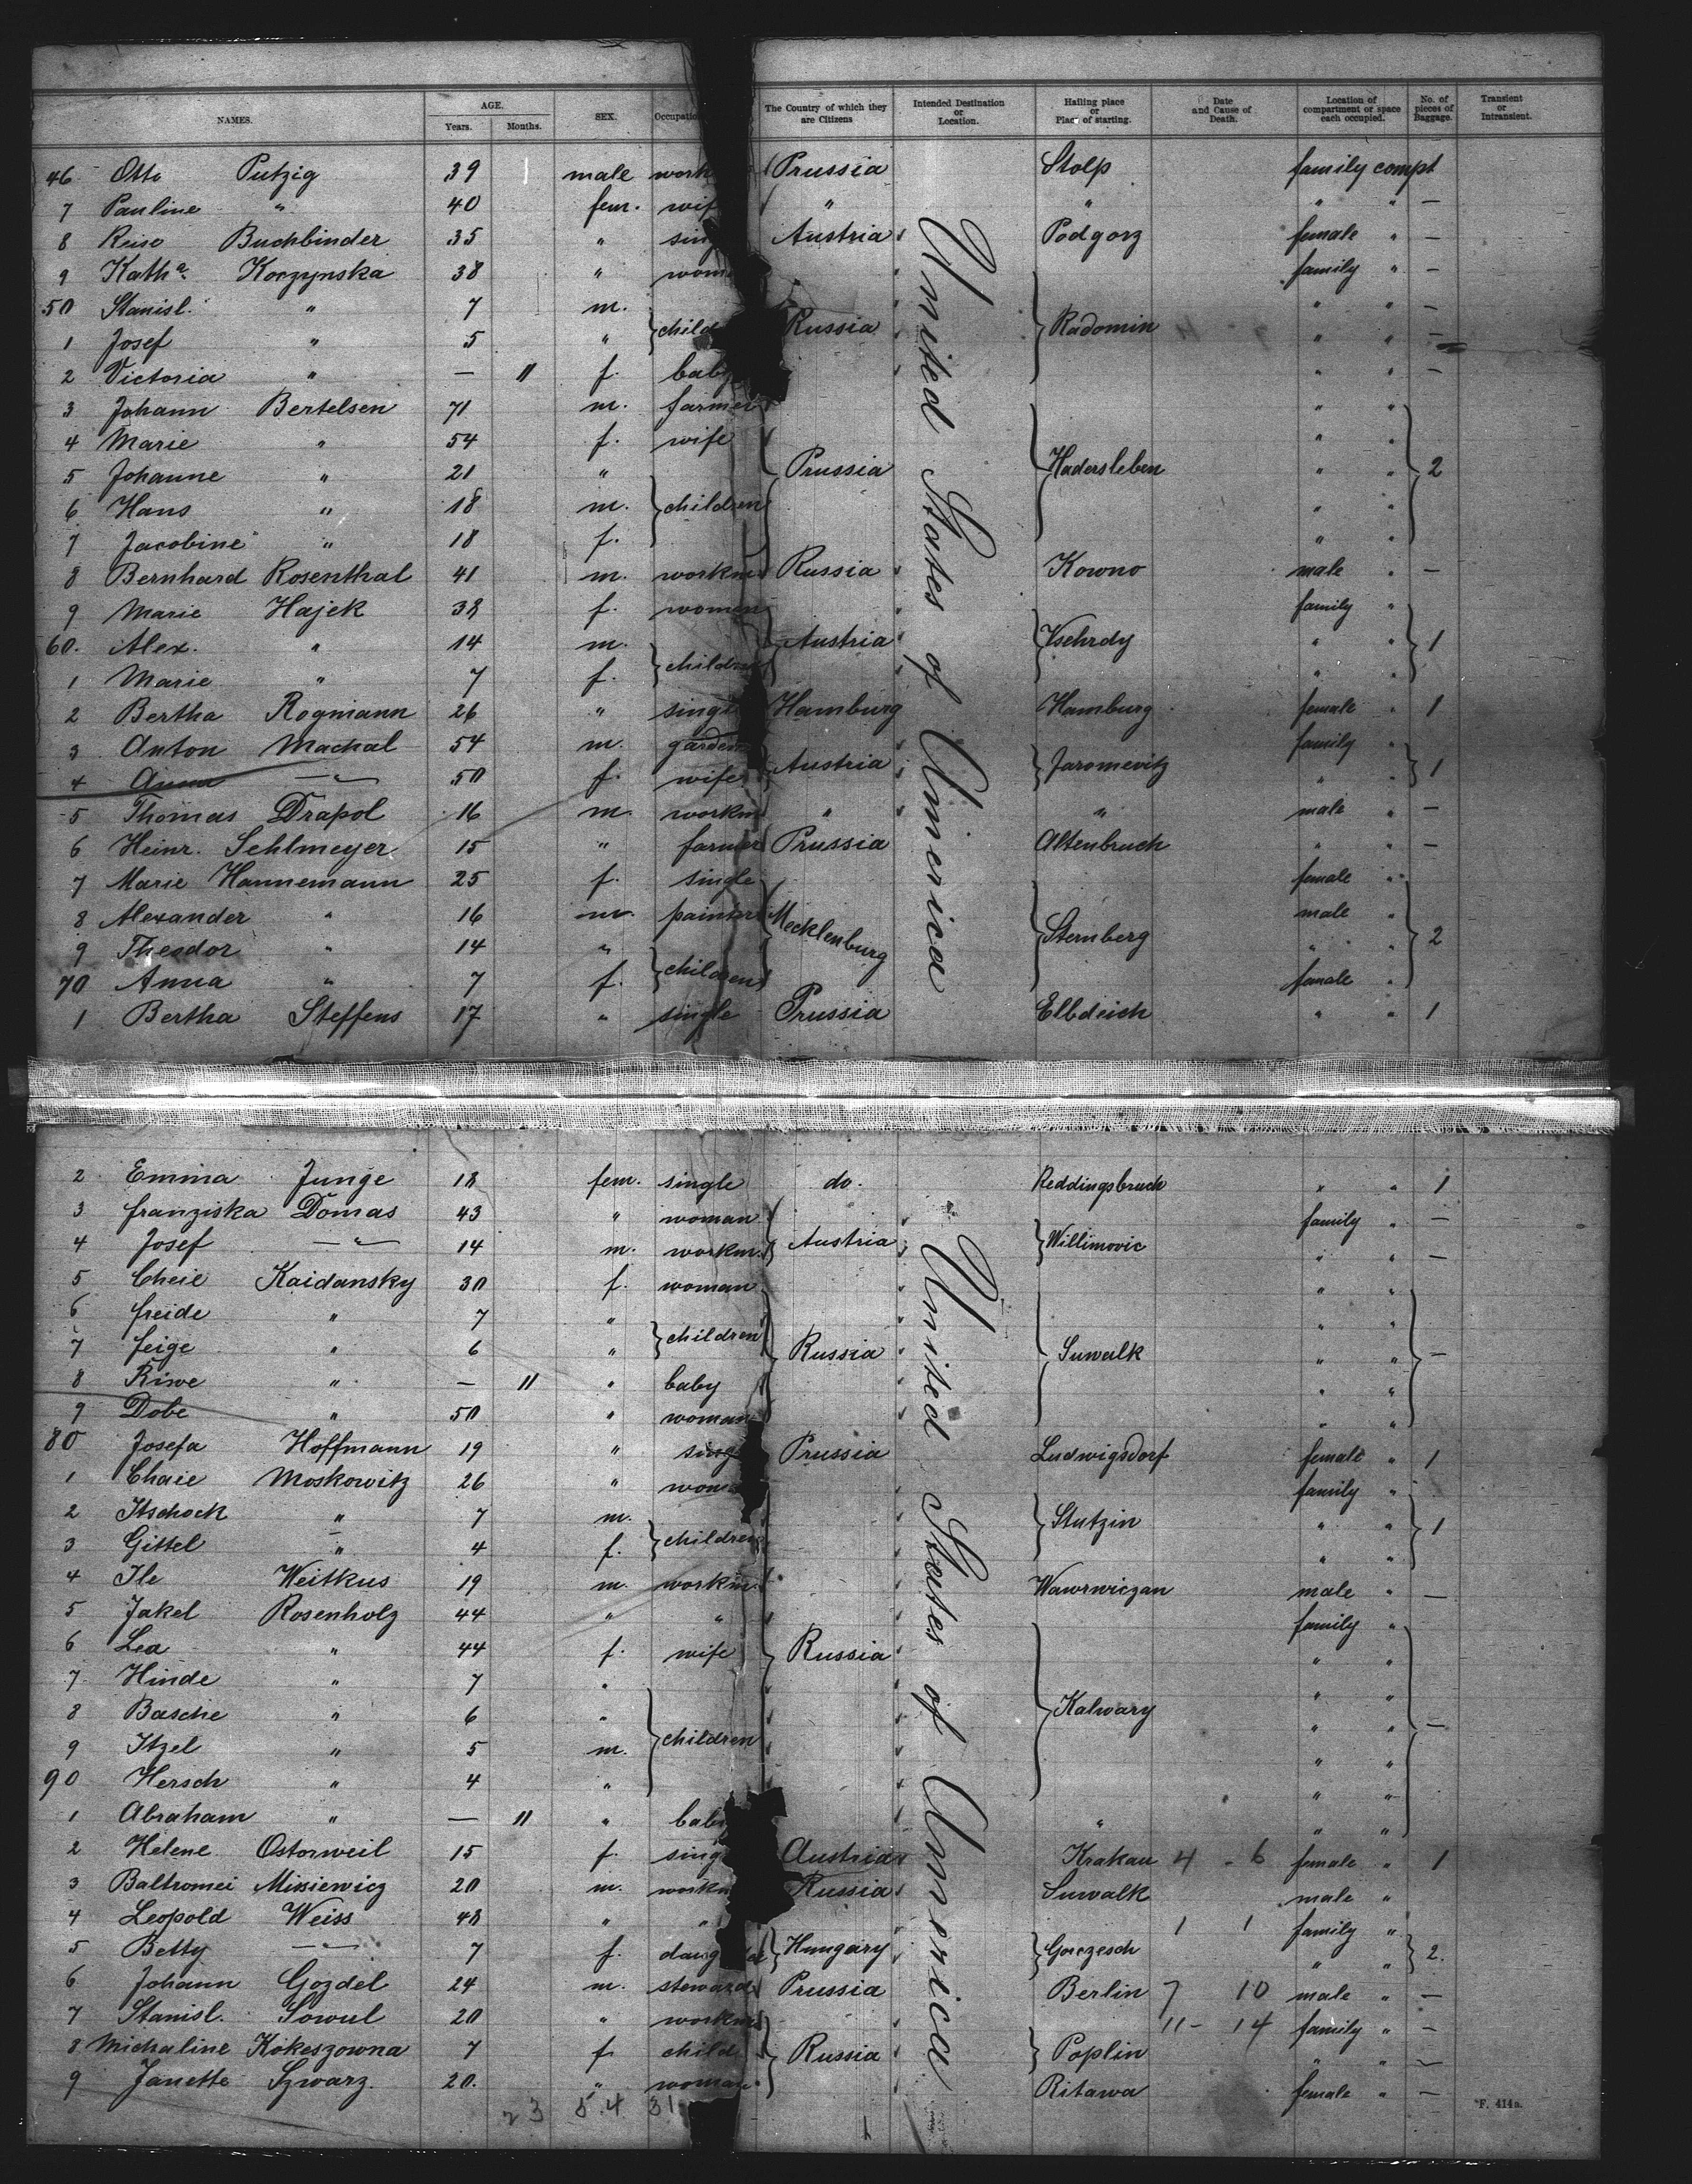 NAMES. AGE. Years. Months. SEX. Occupation The Country of which they are Citizens Intended Destination or Location. Hailing place or Place of starting. Date and Cause of Death. Location of compartment or space each occupied. No. of pieces of Baggage. Transient or Intransient.
46 Otto Putzig 39 male work Prussia Stolp family compt
7 Pauline " 40 fem. wife " " " " —
8 Reise Buchbinder 35 " sing Austria Podgorz female " —
9 Katha. Korzynska 38 " woman family " —
50 Stanisl. " 7 m. " " —
1 Josef " 5 " } child Russia } Radomin " " —
2 Victoria " — 11 f. baby " " —
3 Johann Bertelsen 71 m. farmer " "
4 Marie " 54 f. wife " "
5 Johanne " 21 " Prussia Hadersleben " " } 2
6 Hans " 18 m. } children " "
7 Jacobine " 18 f. " "
8 Bernhard Rosenthal 41 m. workm Russia Kowno male " —
9 Marie Hajek 38 f. woman family "
60. Alex. " 14 m. Austria } Vsehrdy " " } 1
1 Marie " 7 f. } children " "
2 Bertha Rogmann 26 " single Hamburg Hamburg female " 1
3 Anton Machal 54 m. garden family "
4 Anna —"— 50 f. wife Austria } Jaromevitz " " } 1
5 Thomas Drapol 16 m. workm " " male " —
6 Heinr. Sehlmeyer 15 " farmer Prussia Altenbruch " " —
7 Marie Hannemann 25 f. single female "
8 Alexander " 16 m. painter Mecklenburg } Sternberg male "
9 Theodor " 14 " " " } 2
70 Anna " 7 f. } children female "
1 Bertha Steffens 17 " single Prussia Elbdeich " " 1
United States of America
2 Emma Junge 18 fem. single do. Reddingsbruch " " 1
3 Franziska Domas 43 " woman family " —
4 Josef —"— 14 m. workm. Austria } Willimovic " " —
5 Cheie Kaidansky 30 f. woman " "
6 Freide " 7 " " "
7 Feige " 6 " } children Russia } Suwalk " " } —
8 Riwe " — 11 " baby " "
9 Dobe " 50 " woman " "
80 Josefa Hoffmann 19 " sing Prussia Ludwigsdorf female " 1
1 Chaie Moskowitz 26 " woma family "
2 Itschock " 7 m. } Stutzin " " } 1
3 Gittel " 4 f. } children " "
4 Ile Weitkus 19 m. workm. Wawrwiczan male " —
5 Jakel Rosenholz 44 " " family "
6 Lea " 44 f. wife Russia " "
7 Hinde " 7 " " "
8 Basche " 6 " } Kalwary " " } —
9 Itzel " 5 m. } children " "
90 Hersch " 4 " " "
1 Abraham " — 11 " baby " " "
2 Helene Ostorweil 15 f. sing Austria Krakau 4 - 6 female " 1
3 Baltromei Misiewicz 20 m. workm Russia Suwalk male "
4 Leopold Weiss 48 " " 1 1 family "
5 Betty —"— 7 f. daug Hungary } Gorczesch " " } 2.
6 Johann Gozdel 24 m. steward Prussia Berlin 7 10 male " —
7 Stanisl. Sowul 20 " workm 11 - 14 family " —
8 Michaline Kokeszowna 7 f. child Russia } Poplin " " —
9 Janette Szwarz. 20. " woman Ritawa female " —
United States of America
23 5.4 31
*F. 414a.